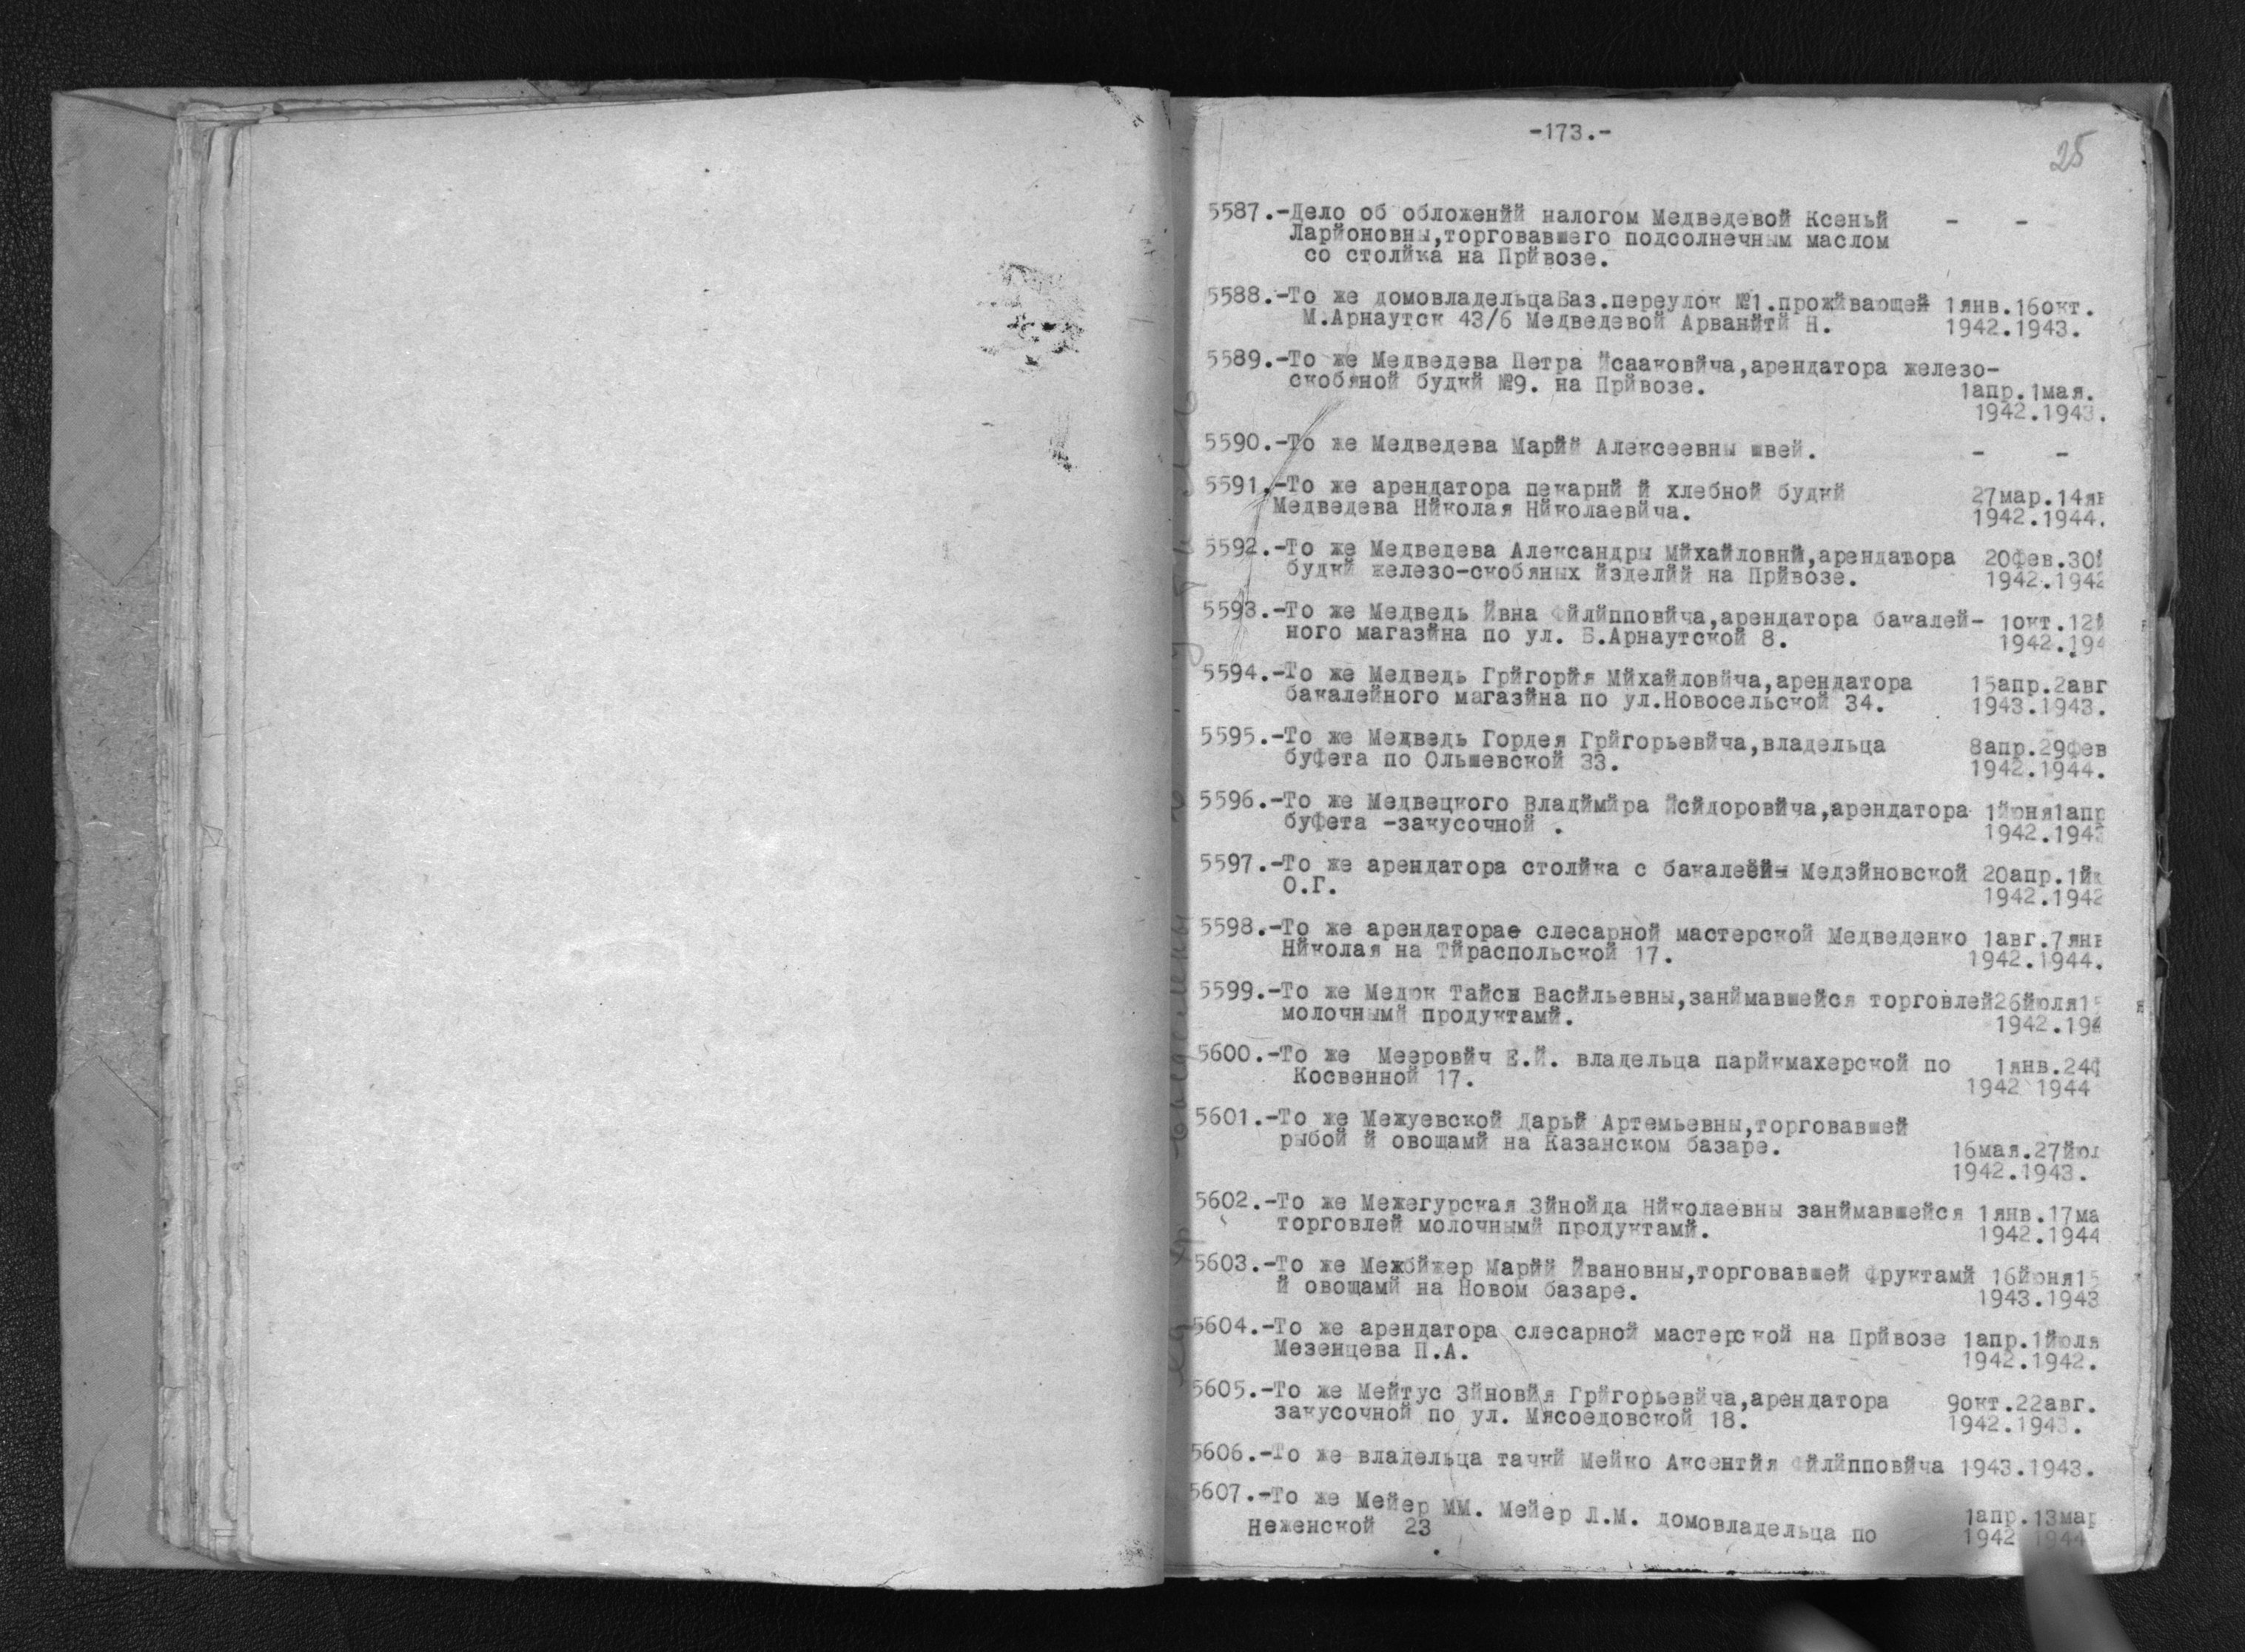 -173.-
25
5587.-Дело об обложенйй налогом Медведевой Ксеньй - -
Ларйоновны,торговавшего подсолнечным маслом
со столйка на Прйвозе.
5588.-То же домовладельцаБаз.переулок №1.прожйвающей 1янв.16окт.
М.Арнаутск 43/6 Медведевой Арванйтй Н. 1942.1943.
5589.-То же Медведева Петра Йсааковйча,арендатора железо-
скобяной будкй №9. на Прйвозе. 1апр.1мая.
1942.1943.
5590.-То же Медведева Марйй Алексеевны швей. - -
5591.-То же арендатора пекарнй й хлебной будкй 27мар.14ян
Медведева Нйколая Нйколаевйча. 1942.1944.
5592.-То же Медведева Александры Мйхайловнй,арендатора 20фев.30й
будкй железо-скобяных йзделйй на Прйвозе. 1942.1942
5593.-То же Медведь Йвна Фйлйпповйча,арендатора бакалей- 1окт.12й
ного магазйна по ул. Б.Арнаутской 8. 1942.194
5594.-То же Медведь Грйгорйя Мйхайловйча,арендатора 15апр.2авг
бакалейного магазйна по ул.Новосельской 34. 1943.1943.
5595.-То же Медведь Гордея Грйгорьевйча,владельца 8апр.29фев
буфета по Ольшевской 33. 1942.1944.
5596.-То же Медвецкого Владймйра Йсйдоровйча,арендатора 1йюня1апр
буфета -закусочной . 1942.1943
5597.-То же арендатора столйка с бакалеёй Медзйновской 20апр.1йю
О.Г. 1942.1942
5598.-То же арендаторае слесарной мастерской Медведенко 1авг.7янв
Нйколая на Тйраспольской 17. 1942.1944.
5599.-То же Медюк Тайсы Васйльевны,занймавшейся торговлей26йюля15
молочнымй продуктамй. 1942.194
5600.-То же Мееровйч Е.Й. владельца парйкмахерской по 1янв.24ф
Косвенной 17. 1942 1944
5601.-То же Межуевской Дарьй Артемьевны,торговавшей
рыбой й овощамй на Казанском базаре. 16мая.27йюл
1942.1943.
5602.-То же Межегурская Зйнойда Нйколаевны занймавшейся 1янв.17ма
торговлей молочнымй продуктамй. 1942.1944
5603.-То же Межбйжер Марйй Йвановны,торговавшей фруктамй 16йюня15
й овощамй на Новом базаре. 1943.1943
5604.-То же арендатора слесарной мастерской на Прйвозе 1апр.1йюля
Мезенцева П.А. 1942.1942.
5605.-То же Мейтус Зйновйя Грйгорьевйча,арендатора 9окт.22авг.
закусочной по ул. Мясоедовской 18. 1942.1943.
5606.-То же владельца тачкй Мейко Аксентйя Фйлйпповйча 1943.1943.
5607.-То же Мейер ММ. Мейер Л.М. домовладельца по 1апр.13мар
Неженской 23 . 1942 1944